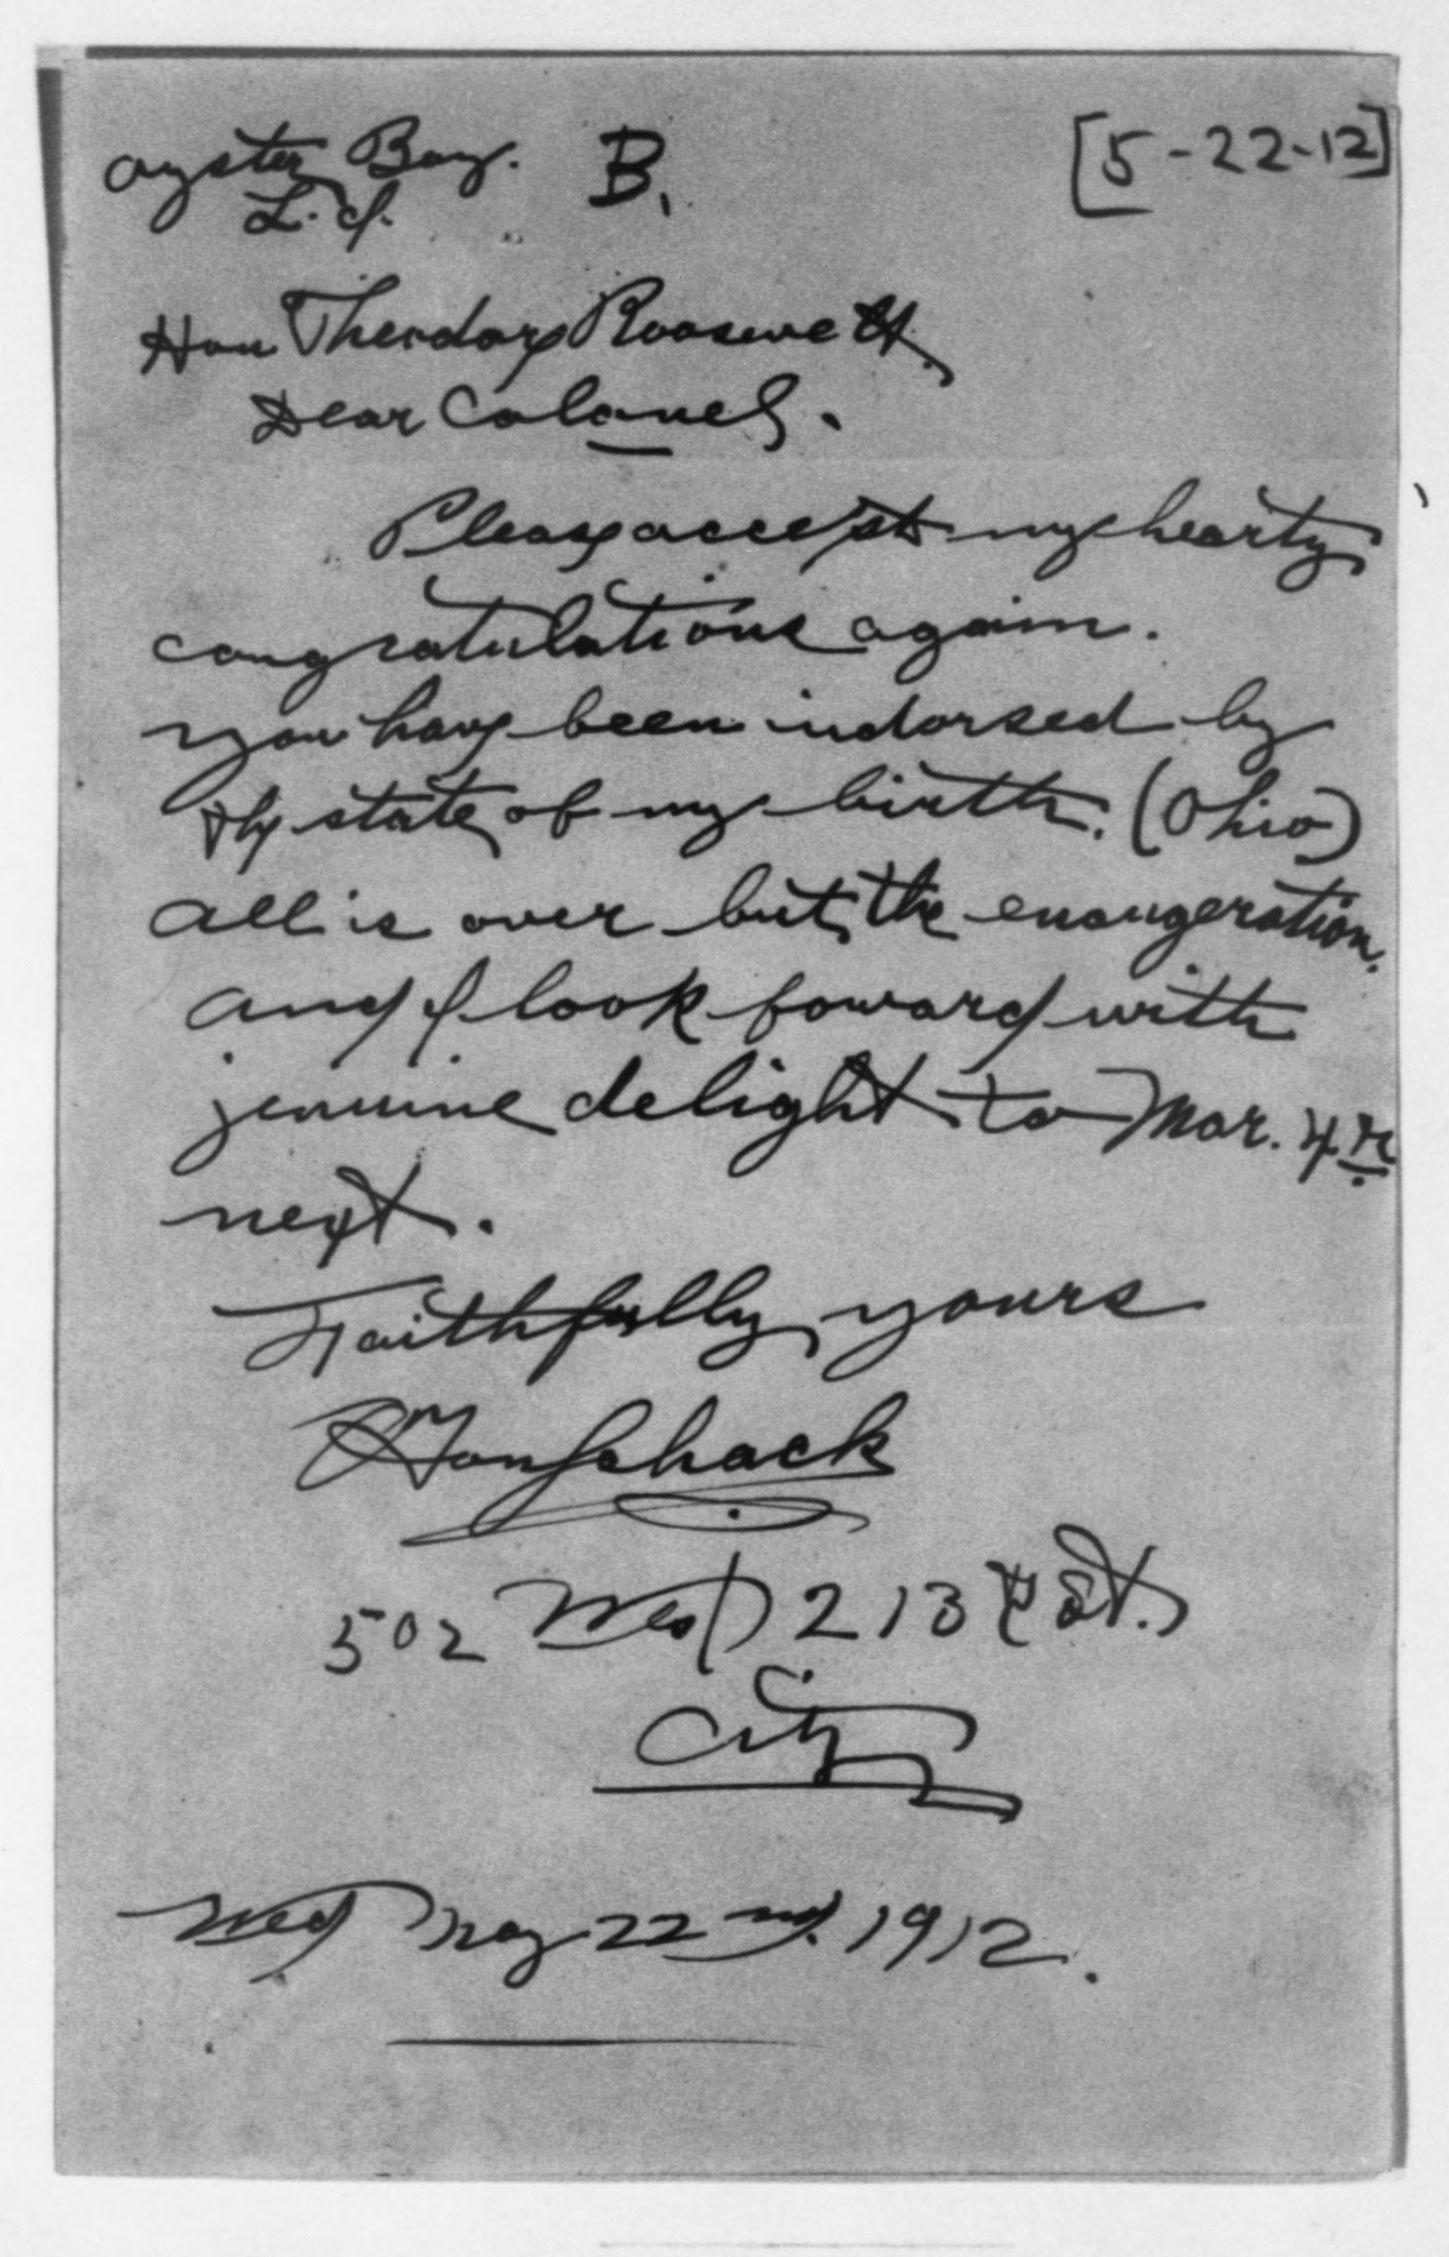 Oyster Bay. B. [5-22-12]
L.I.
Hon Theodore Roosevelt.
Dear Colonel.
Please accept my hearty
congratulations again.
you have been indorsed by
the state of my birth. (Ohio)
all is over but the enaugeration.
and I look foward with
jenuine delight to Mar. 4th
next.
Faithfully yours
502 West 213th St.
City
Wed May 22nd. 1912.